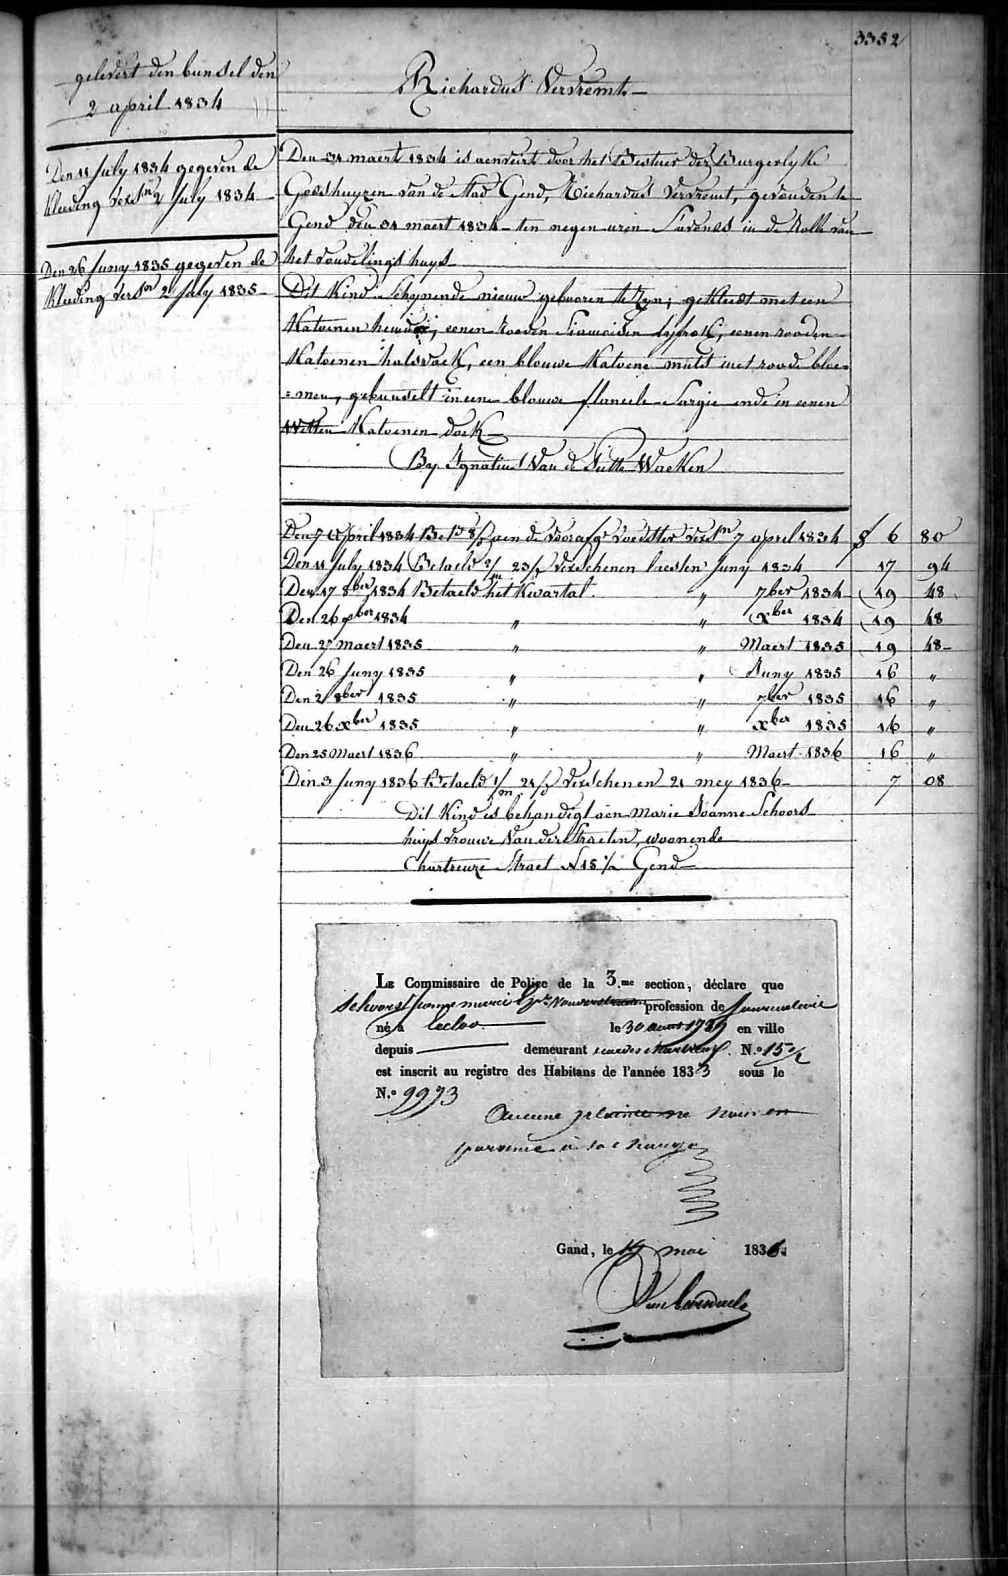 3352
gelevert den bunsel den
2 april 1834
Den 11 July 1834 gegeven de
kleeding versn 2 July 1834
Den 26 Juny 1835 gegeven de
kleeding versn 2 July 1835
Richardus Vervremt
Den 31 maert 1834 is aenveirt door het Bestuer der Burgerlyke
Godshuyzen van de Stad Gend, Richardus Vervremt, gevonden te
Gend den 31 maert 1834 ten negen uren s'avonds in de Rolle van
het vondelings huys
Dit Kind schynende nieuw gebooren te zyn; gekleedt met een
Katoenen hemde, eenen rooden lyfrok, eenen rooden
Katoenen halsdoek, een blouwe Katoene muts met roode bloe=
=men, gebunselt in eene blouwe flanelle Sargie ende in eenen
Witten Katoenen doek
By Ignatius Van de Putte Waeken
Den 7 April 1834 Bet aen de voedster versn 7 april 1834 f 6 80
Den 11 July 1834 Betaeld 2/m 23/d verschenen laesten Juny 1834 17 94
Den 17 8ber 1834 Betaeld het Kwartal " 7ber 1834 19 48
Den 26 xber 1834 " " xber 1834 19 48
Den 27 Maert 1835 " " Maert 1835 19 48
Den 26 Juny 1835 " " Juny 1835 16 "
Den 2 8ber 1835 " " 7ber 1835 16 "
Den 26 xber 1835 " " xber 1835 16 "
Den 25 Maert 1836 " " Maert 1836 16 "
Den 3 Juny 1836 Betaeld 1/m 21/d verschenen 21 mey 1836 7 08
Dit Kind is behandigt aen Marie Joanne Schoors
huysvrouwe Van der Straeten, woonende
Chartreuze Straet N 15 1/2 Gend
Le Commissaire de Police de la 3.me section, déclare que
Schoors Jeanne marie profession de Journaliere
né à Eecloo le 30 aout 1789 en ville
depuis demeurant rue des chartreux N.o 15 1/2
est inscrit au registre des Habitans de l'année 1833 sous le
N.o 9973
Aucune plainte ne nous en
parvenue à sa charge
Gand, le 19 mai 1836.